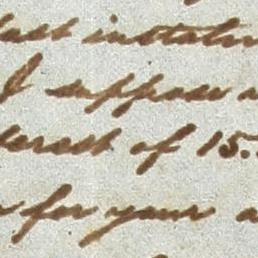 last instalm
I suppose
terest of 15.
for your a